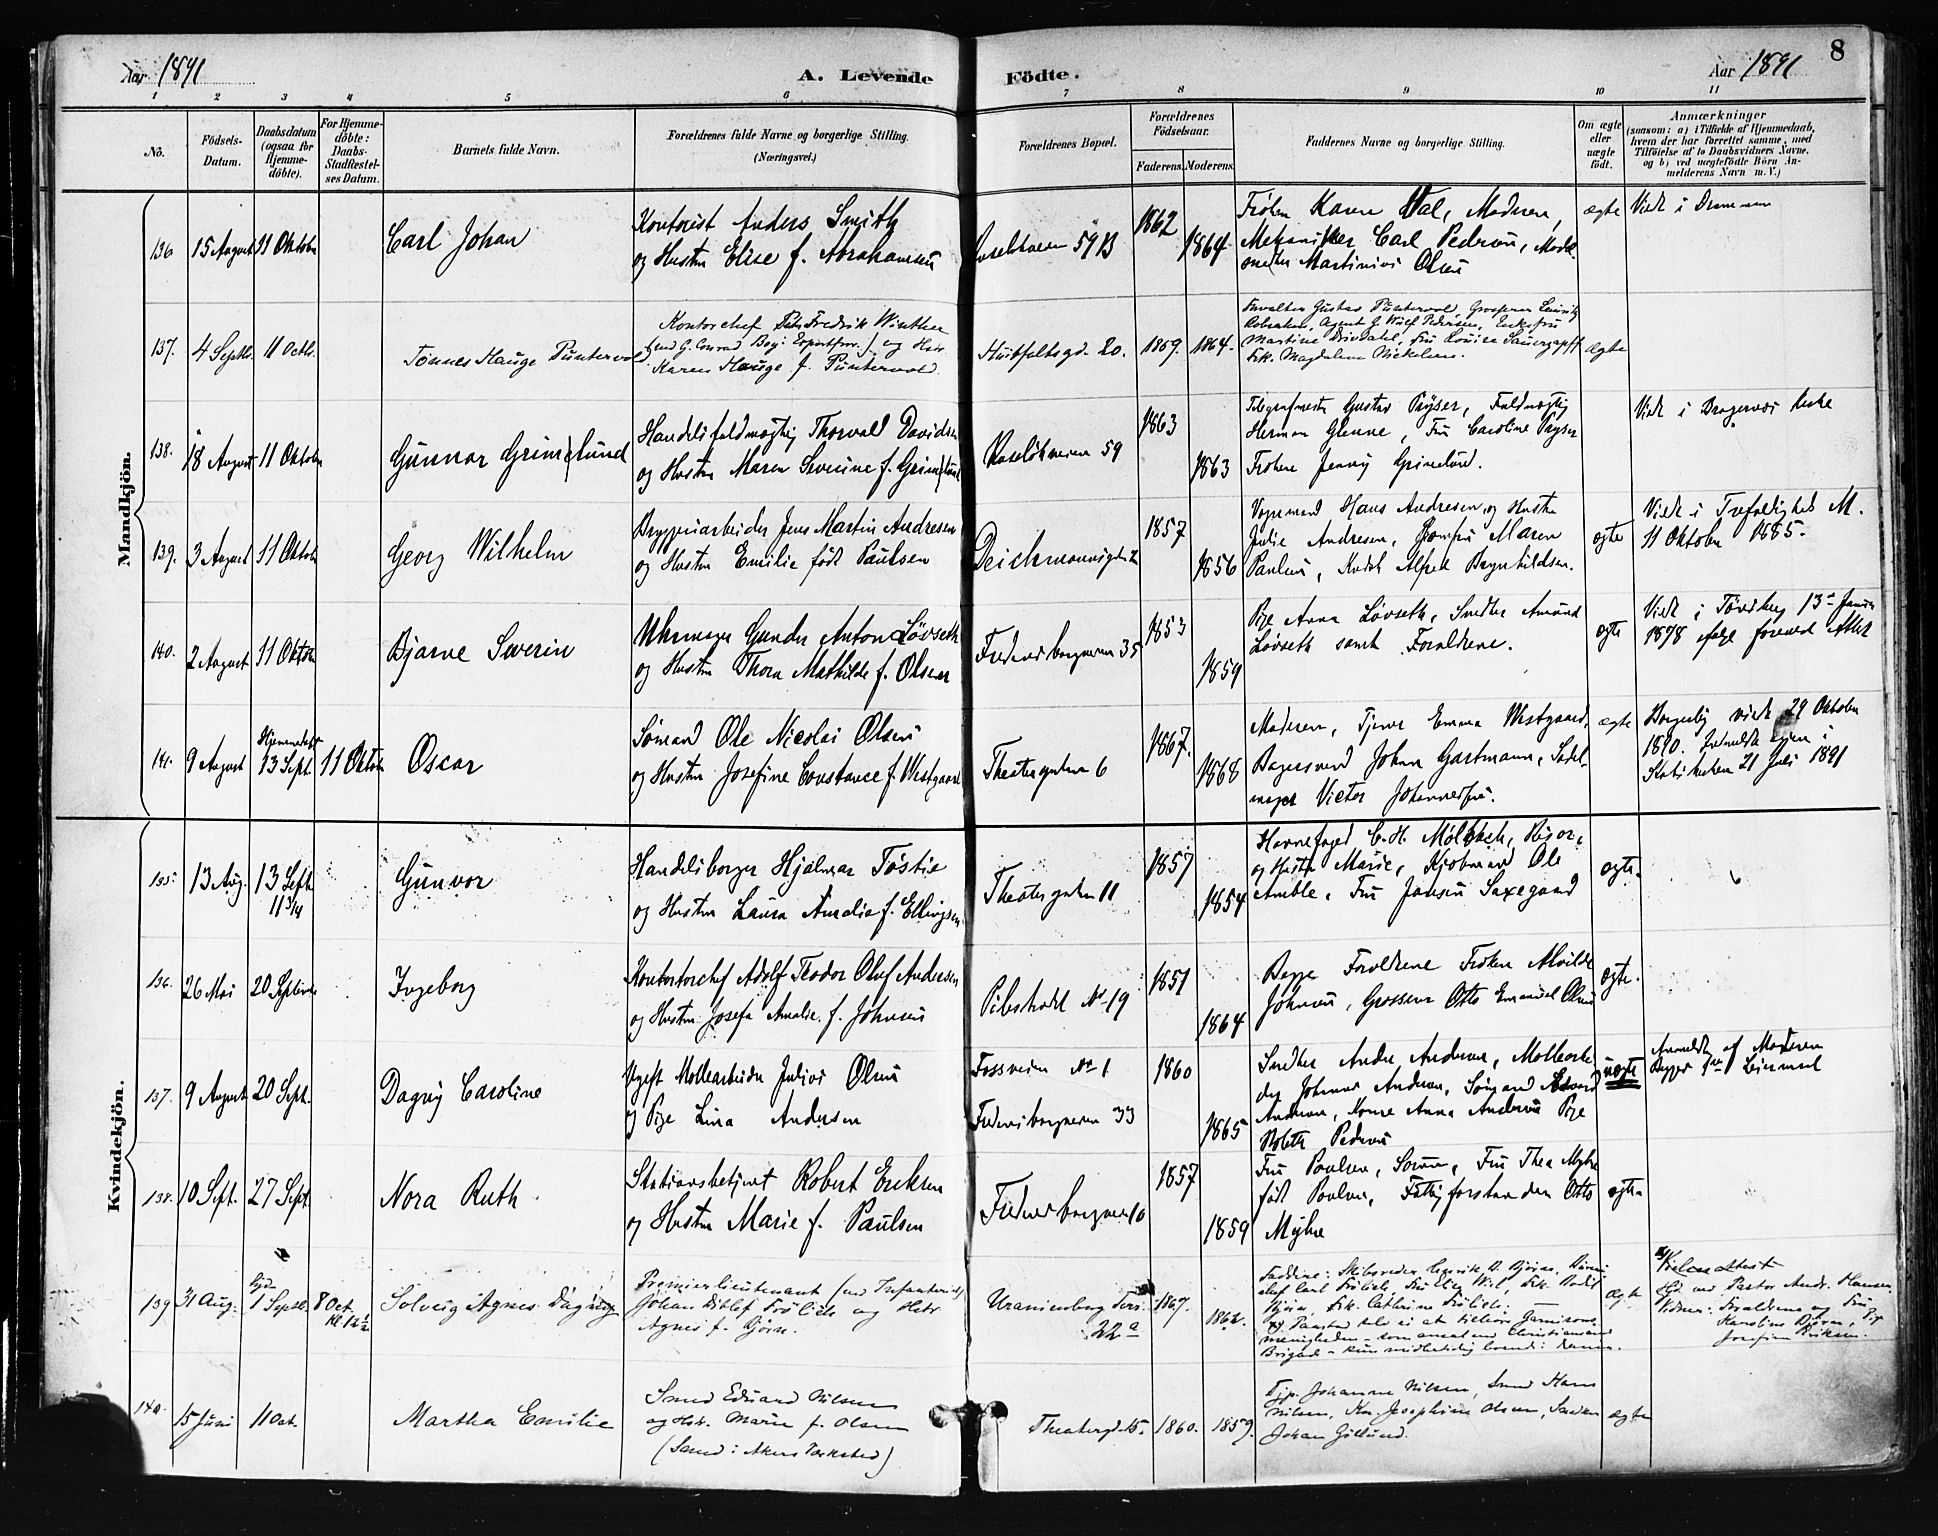 Aar 1891
A. Levende Födte.
Aar 1891
8
1 2 3 4 5 6 7 8 9 10 11
No.
Födsels-Datum.
Daabsdatum (ogsaa for Hjemme-döbte).
For Hjemme-döbte: Daabs-Stadfæstel-ses Datum.
Barnets fulde Navn.
Forældrenes fulde Navne og borgerlige Stilling. (Næringsvei.)
Forældrenes Bopæl.
Forældrenes Födselsaar.
Faderens. Moderens.
Faddernes Navne og borgerlige Stilling.
Om ægte eller uægte födt.
Anmærkninger (saasom: a) i Tilfælde af Hjemmedaab, hvem der har forrettet samme, med Tilföielse af to Daabsvidners Navne, og b) ved uægtefödte Börn An-melderens Navn m. V.)
Mandkjön.
136 15 August 11 Oktober Carl Johan
Kontorist Anders Smith
og Hustru Elise f. Abrahamsen
59 B 1862 1864
Frøken Karen Dal, Moderen,
Mekaniker Carl Pedersen,
Martinius Olsen
ægte
Viet i Drammen
137. 4 Septb. 11 Octb. Tønnes Hauge Puntervold
Kontorchef Fredrik Winther
og Hstr.
Karen Hauge f. Puntervold.
Huitfeltsgd. 20. 1859. 1864.
Gustav Puntervold, Grosserer
Agent G. Wulf Pedersen, Enkefru
Martine Drivdahl, Fru Louise
Frk. Magdalene Nickelsen.
ægte
138. 18 August 11 Oktober Gunnar Grimelund
Handelsfuldmægtig Thorvald Davidsen
og Hustru Maren Severine f. Grimelund
Ruseløkveien 59 1863 1863
Telegrafmester Gustav Prýser, Fuldmægtig
Herman Glenne, Fru Caroline Pryser
Frøken Jenny Grimelund.
Viet i Bragernes Kirke
139. 3 August 11 Oktober Georg Wilhelm
Bryggeriarbeider Jens Martin Andresen
og Hustru Emilie født Paulsen
Deichmannsgden 1857 1856
Vognmand Hans Andresen og Hustru
Julie Andresen, Jomfru Maren
Paulsen, Kudsk Alfred Brynhildsen.
ægte
Viet i Trefoldighed M.
11 Oktober 1885.
140. 2 August 11 Oktober Bjarne Severin
Uhrmager Gunder Anton Løvseth
og Hustru Thora Mathilde f. Olsen
Frederiksborgveien 35 1853 1859
Pige Anna Løvseth, Snedker Amund
Løvseth samt Forældrene.
ægte
Viet i Tønsberg 13de Januar
1878 ifølge forevist Attest
141. 9 August Hjemmedøbt 13 Sept. 11 Oktober Oscar
Sømand Ole Nicolai Olsen
og Hustru Josefine Constance f. Westgaard
Theatergaden 6 1867. 1868
Moderen, Tjener Emma Westgaard,
Bagersvend Johan Gartmann, Sadel-
mager Victor Johannessen.
ægte
Borgerlig viet 29 Oktober
1890.
21 Juli 1891
Kvindekjön.
135 13 Aug. 13 Sept. 11 3/4 Gunvor
Handelsborger Hjalmar Tostie
og Hustru Laura Amalie f. Ellingsen
Theatergaden 11 1857 1854
Havnefoged C. H. Møldach, Risør,
og Hustru Marie, Kjøbmand Ole
Amble, Fru Jansen Saxegaard
ægte.
136. 26 Mai 20 September Ingeborg
Kontorchef Adolf Teodor Oluf Andersen
og Hustru Josefa Amalie f. Johnsen
Pilestrædet No 19 1851 1864
Begge Forældrene Frøken Alvilde
Johnsen, Grosserer Otto Emanuel Olsen
ægte.
137. 9 August 20 Sept. Dagny Caroline
Ugift Møllearbeider Julius Olsen
og Pige Lina Andersen
Fossveien No 1 1860
Frederiksborgveien 33 1865
Snedker Andre Andersen, Møllearbei
der Johannes Andersen, Sømand Edvard
Andersen, Kone Anna Andersen Pige
Bolette Pedersen
uægte
Anmeldt af Moderen
Begges 1ste Leiermaal
138. 10 Sept. 27 Sept. Nora Ruth
Stationsbetjent Robert Eriksen
og Hustru Marie f. Paulsen
Frederiksborgveien 10 1857 1859
Fru Poulsen, Fru Thea Myhre
født Poulsen, Fattigforstander Otto
Myhre
ægte
139 31 Aug. Hjd. 1 Septb. 8 Oct. Kl. 12½ Solveig Agnes Dagny
Premierlieutenant (ved Infanteriet)
Johan Ditlef Frölich og Hstr
Agnes f. Bjørn.
Uranienborg Ters. 22a 1867. 1862.
Faddere: Skibsreder Henrik D. Bjørn,
Carl Frölich, Fru Elise Wiel, Frk. Bodil
Bjørn, Frk. Cathrine Frölich.
Paastod ikke ei at tilhøre Garnisons-
menigheden – som ansat ved Christiansand
Brigade – kun midlertidig boende i
ægte
Vielsesattest
Hjd ved Pastor Andr. Hansen
Vidner: Forældrene og Fru
Karoline Bjørn, Pige
Josefine Eriksen.
140. 15 Juni 11 Oct. Martha Emilie
Smed Edvard Nilsen
og Hstr. Marie f. Olsen
(Smed i Akers Værksted)
Theatergd. 15. 1860. 1859.
Tjp. Johanne Nilsen, Smed Hans
Nilsen, Kn. Josephine Olsen,
Johan Gillund.
ægte